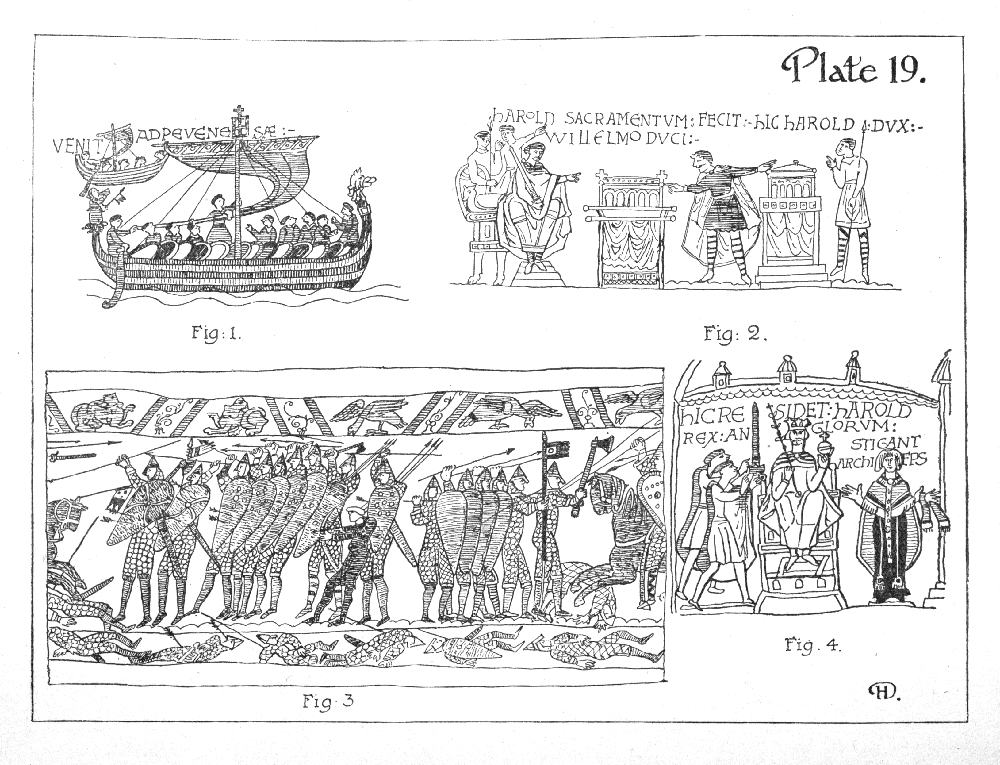 Plate 19.
VENIT AD PEVENE SÆ :-
Fig: 1.
HAROLD SACRAMENTVM: FECIT:- HIC HAROLD • DVX:-
WILLELMO DVCI:-
Fig: 2.
Fig: 3
HIC RE SIDET: HAROLD
REX: AN GLORVM:
STIGANT
ARCHI EPS
Fig. 4.
H.